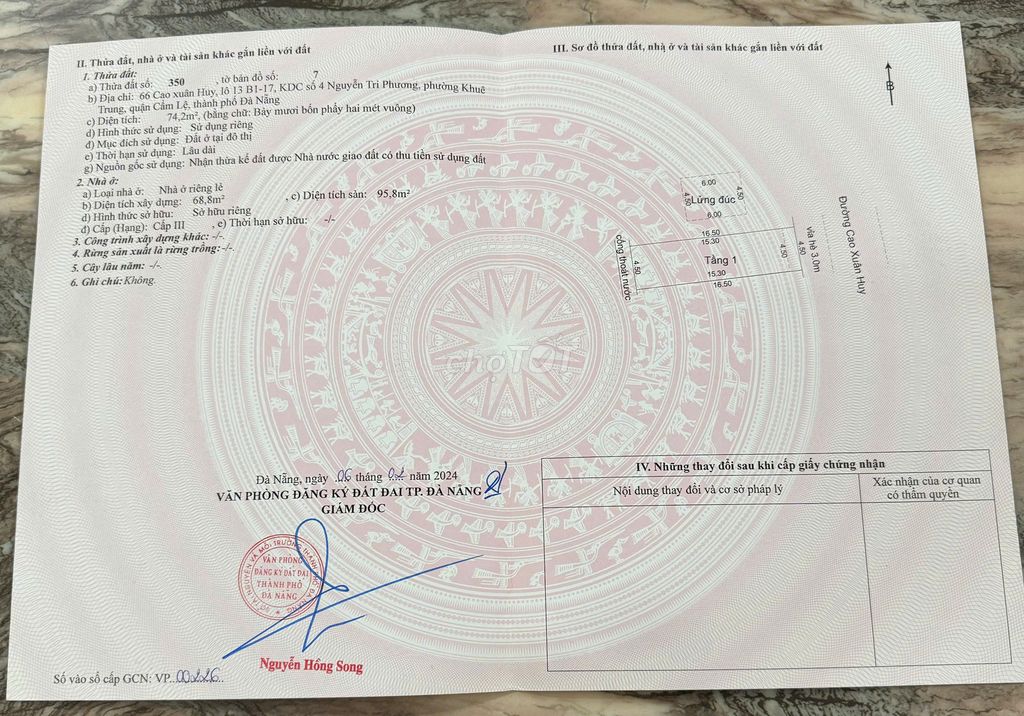 II. Thửa đất, nhà ở và tài sản khác gắn liền với đất
1. Thửa đất:
a) Thửa đất số: 350 , tờ bản đồ số: 7
b) Địa chỉ: 66 Cao xuân Huy, lô 13 B1-17, KDC số 4 Nguyễn Tri Phương, phường Khuê
Trung, quận Cẩm Lệ, thành phố Đà Nẵng
c) Diện tích: 74,2m², (bằng chữ: Bảy mươi bốn phẩy hai mét vuông)
d) Hình thức sử dụng: Sử dụng riêng
đ) Mục đích sử dụng: Đất ở tại đô thị
e) Thời hạn sử dụng: Lâu dài
g) Nguồn gốc sử dụng: Nhận thừa kế đất được Nhà nước giao đất có thu tiền sử dụng đất
2. Nhà ở:
a) Loại nhà ở: Nhà ở riêng lẻ
b) Diện tích xây dựng: 68,8m² , c) Diện tích sàn: 95,8m²
d) Hình thức sở hữu: Sở hữu riêng
đ) Cấp (Hạng): Cấp III , e) Thời hạn sở hữu: -/-
3. Công trình xây dựng khác: -/-
4. Rừng sản xuất là rừng trồng: -/-
5. Cây lâu năm: -/-
6. Ghi chú: Không
Đà Nẵng, ngày 06 tháng 02 năm 2024
VĂN PHÒNG ĐĂNG KÝ ĐẤT ĐAI TP. ĐÀ NẴNG
GIÁM ĐỐC
VĂN PHÒNG
ĐĂNG KÝ ĐẤT ĐAI
THÀNH PHỐ
ĐÀ NẴNG
Nguyễn Hồng Song
Số vào sổ cấp GCN: VP..00226.
III. Sơ đồ thửa đất, nhà ở và tài sản khác gắn liền với đất
B
6.00
4.50
Lửng đúc
4.50
6.00
16.50
15.30
cống thoát nước
4.50
Tầng 1
4.50
4.50
vỉa hè 3.0m
Đường Cao Xuân Huy
15.30
16.50
chợTỐT
IV. Những thay đổi sau khi cấp giấy chứng nhận
Nội dung thay đổi và cơ sở pháp lý
Xác nhận của cơ quan
có thẩm quyền